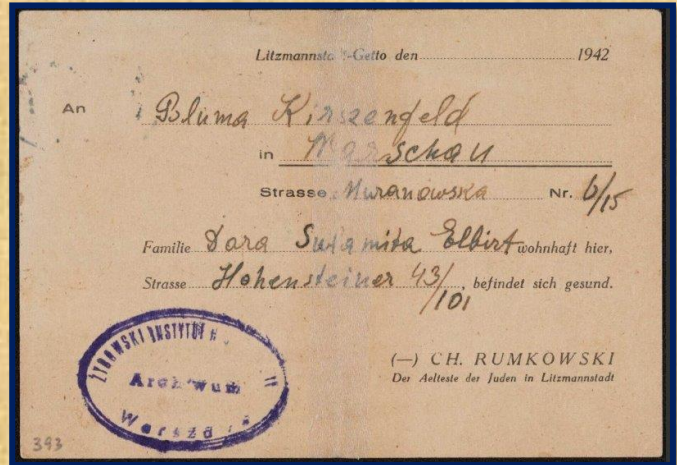 Litzmannstadt-Getto den 1942
An Bluma Kirszenfeld
in Warschau
Strasse Muranowska Nr. 6/15
Familie Dora Sulamita Elbirt wohnhaft hier,
Strasse Hohensteiner 43/101, befindet sich gesund.
(—) CH. RUMKOWSKI
Der Aelteste der Juden in Litzmannstadt
ŻYDOWSKI INSTYTUT H
Archiwum
Warszawa
393